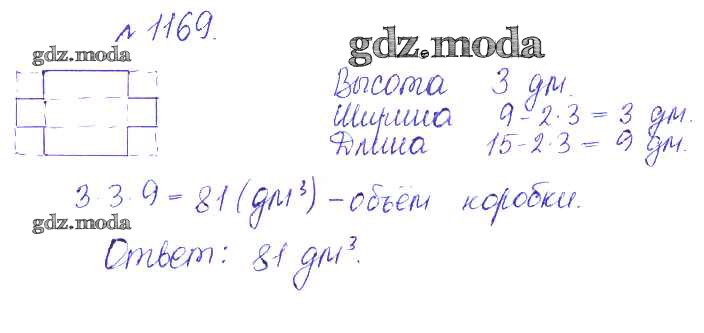 № 1169.
gdz.moda
gdz.moda
Высота 3 дм.
Ширина 9-2·3=3 дм.
Длина 15-2·3=9 дм.
3·3·9=81(дм³)-объём коробки.
gdz.moda
Ответ: 81 дм³.